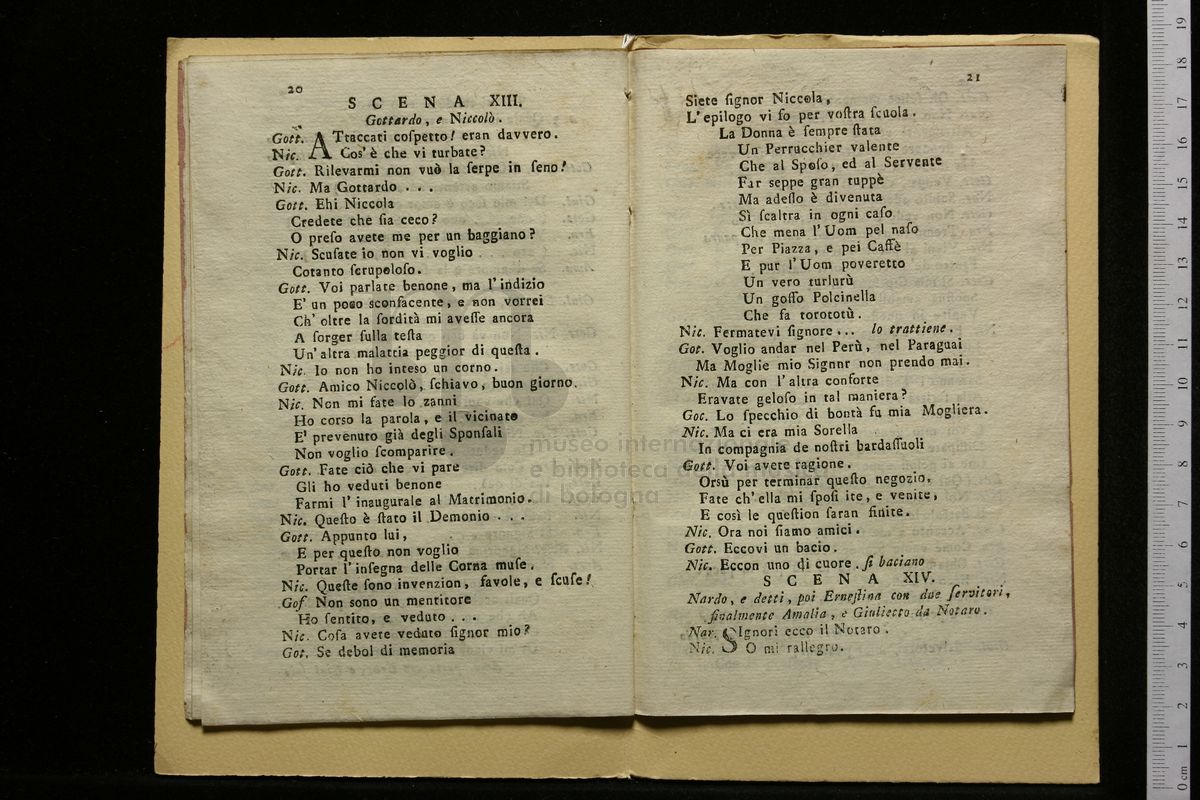 20
SCENA XIII.
Gottardo, e Niccolò.
Gott. ATtaccati coſpetto! eran davvero.
Nic. Cos' è che vi turbate?
Gott. Rilevarmi non vuò la ſerpe in ſeno!
Nic. Ma Gottardo . . .
Gott. Ehi Niccola
Credete che ſia ceco?
O preſo avete me per un baggiano?
Nic. Scuſate io non vi voglio
Cotanto ſcrupoloſo.
Gott. Voi parlate benone, ma l' indizio
E' un poco sconfacente, e non vorrei
Ch' oltre la ſordità mi aveſſe ancora
A ſorger ſulla teſta
Un' altra malattia peggior di queſta.
Nic. Io non ho inteso un corno.
Gott. Amico Niccolò, ſchiavo, buon giorno.
Nic. Non mi fate lo zanni
Ho corso la parola, e il vicinato
E' prevenuto già degli Sponſali
Non voglio ſcomparire.
Gott. Fate ciò che vi pare
Gli ho veduti benone
Farmi l' inaugurale al Matrimonio.
Nic. Queſto è ſtato il Demonio . . .
Gott. Appunto lui,
E per queſto non voglio
Portar l' inſegna delle Corna muſe.
Nic. Queſte ſono invenzion, favole, e ſcuſe!
Gof Non sono un mentitore
Ho ſentito, e veduto . . .
Nic. Coſa avete veduto ſignor mio?
Got. Se debol di memoria
21
Siete ſignor Niccola,
L' epilogo vi fo per voſtra ſcuola.
La Donna è ſempre ſtata
Un Perrucchier valente
Che al Spoſo, ed al Servente
Far seppe gran tuppè
Ma adeſſo è divenuta
Sì ſcaltra in ogni caſo
Che mena l' Uom pel naſo
Per Piazza, e pei Caffè
E pur l' Uom poveretto
Un vero turlurù
Un goffo Polcinella
Che fa torototù.
Nic. Fermatevi ſignore... lo trattiene.
Got. Voglio andar nel Perù, nel Paraguai
Ma Moglie mio Signnr non prendo mai.
Nic. Ma con l' altra conforte
Eravate geloſo in tal maniera?
Goc. Lo ſpecchio di bontà fu mia Mogliera.
Nic. Ma ci era mia Sorella
In compagnia de noſtri bardaſſuoli
Gott. Voi avete ragione.
Orsù per terminar queſto negozio,
Fate ch' ella mi ſpoſi ite, e venite,
E così le queſtion ſaran finite.
Nic. Ora noi ſiamo amici.
Gott. Eccovi un bacio.
Nic. Eccon uno di cuore. ſi baciano
SCENA XIV.
Nardo, e detti, poi Erneſtina con due ſervitori,
finalmente Amalia, e Giulietto da Notaro.
Nar. SIgnori ecco il Notaro.
Nic. O mi rallegro.
museo internazionale
e biblioteca della musica
di bologna
19
18
17
16
15
14
13
12
11
10
9
8
7
6
5
4
3
2
1
0 cm